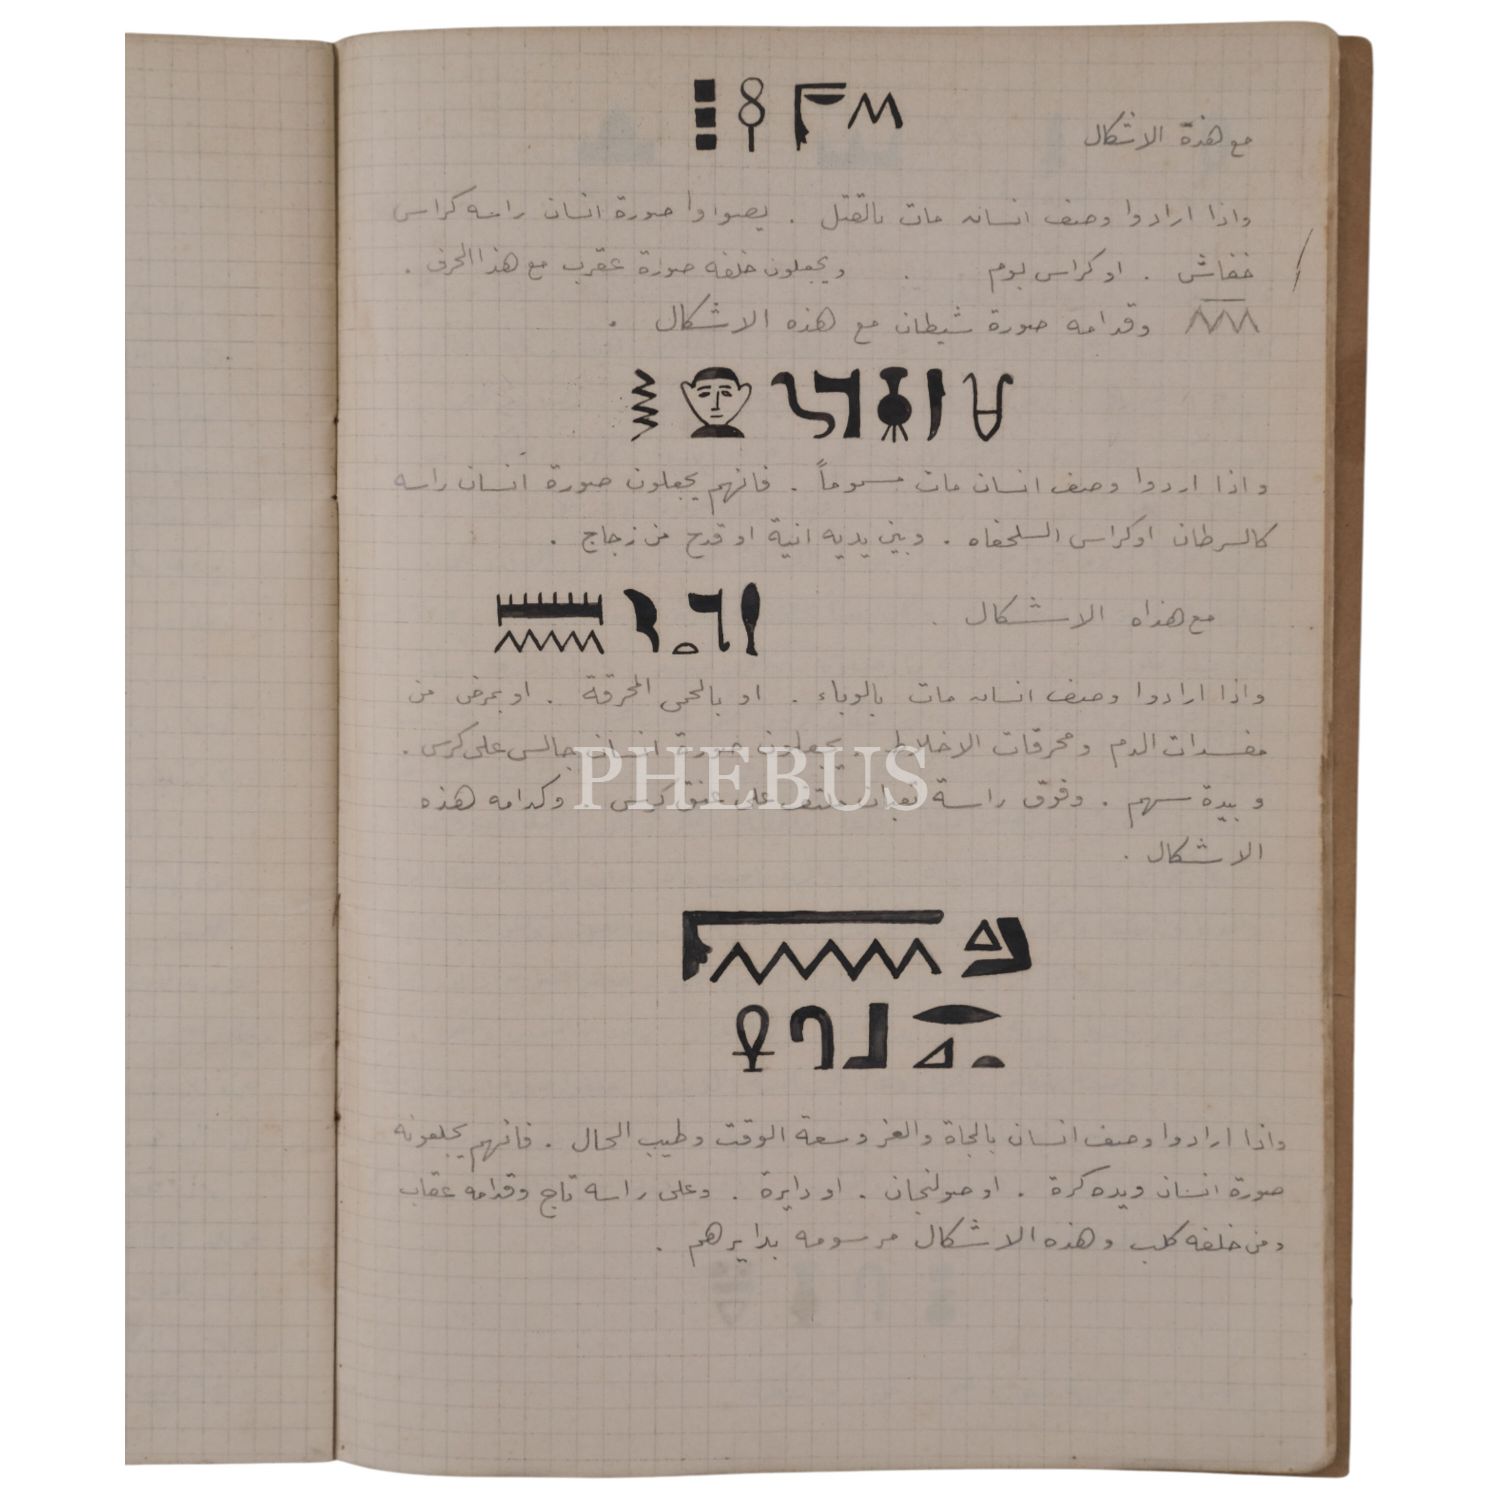 مع هذة الاشكال
واذا ارادوا وصف انسان مات بالقتل . يصوا وا صورة انسان راسه كراس
خفاش . او كراس بوم . ويجعلون خلفه صورة عقرب مع هذا الحرف .
وقدامه صورة شيطان مع هذه الاشكال .
واذا اردوا وصف انسان مات مسموماً . فانهم يجعلون صورة انسان راسه
كالسرطان او كراس السلحفاه . وبين يديه انية او قدح من زجاج .
مع هذاه الاشكال .
واذا ارادوا وصف انسان مات بالوباء . او بالحمى المحرقة . او بمرض من
مفسدات الدم ومحرقات الاخلاط . يجعلون صورة انسان جالس على كرسى .
وبيدة سهم . وفوق راسة ملتف على عنق كرسى . وكدامه هذه
الاشكال .
واذا ارادوا وصف انسان بالجاة والعز وسعة الوقت وطيب الحال . فانهم يجلعونه
صورة انسان ويده كرة . او صولنجان . او دايرة . وعلى راسه تاج وقدامه عقاب
ومن خلفه كلب وهذه الاشكال مرسومه بدايرهم .
PHEBUS